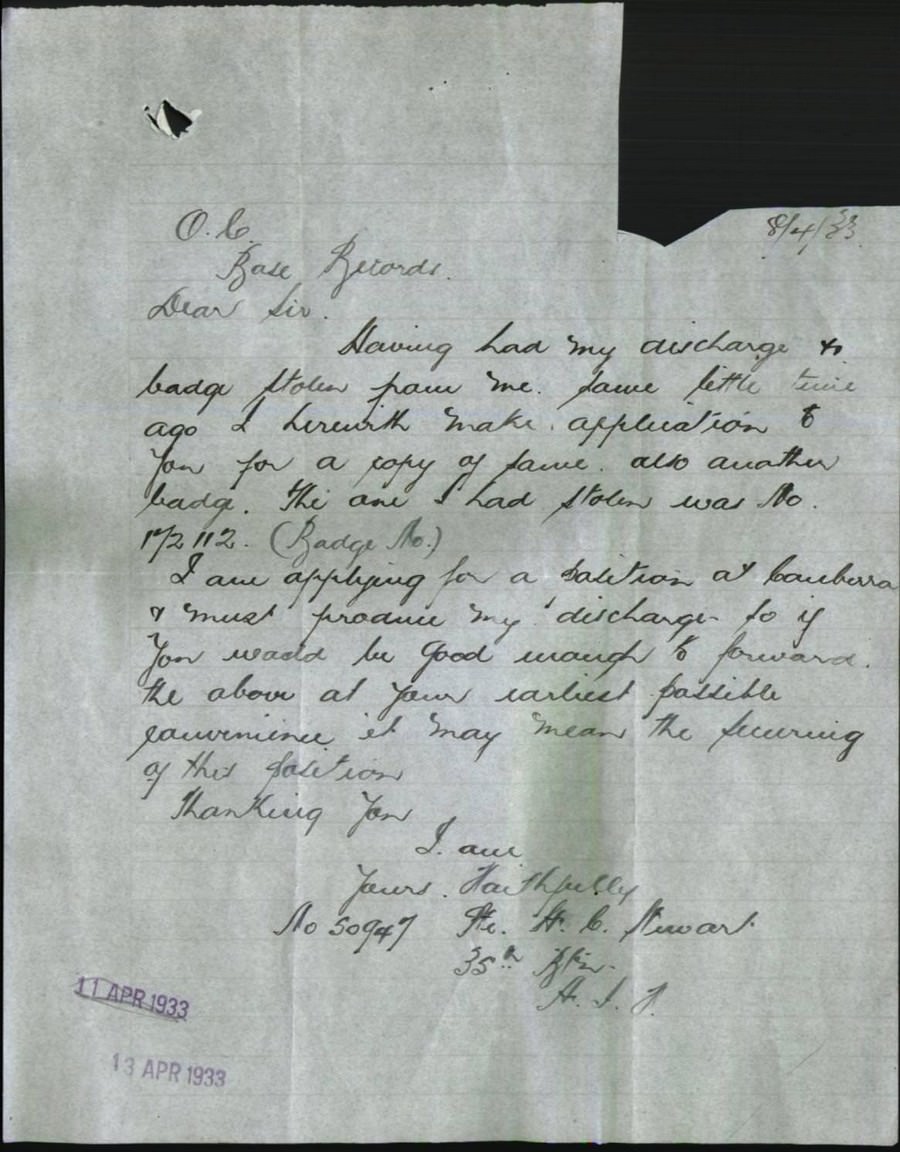 8/4/33
O.C.
Base Records.
Dear Sir.
Having had my discharge &
badge stolen from me. some little time
ago I herewith make application to
you for a copy of same. also another
badge. The one I had stolen was No.
172112. (Badge No.)
I am applying for a position at Canberra
& must produce my discharge so if
you would be good enough to forward.
the above at your earliest possible
convenience it may mean the securing
of this position
Thanking You
I. am
Yours. Faithfully
No 50947 Pte. H. C. Stewart
35th Btn.
A. I. F.
11 APR 1933
13 APR 1933